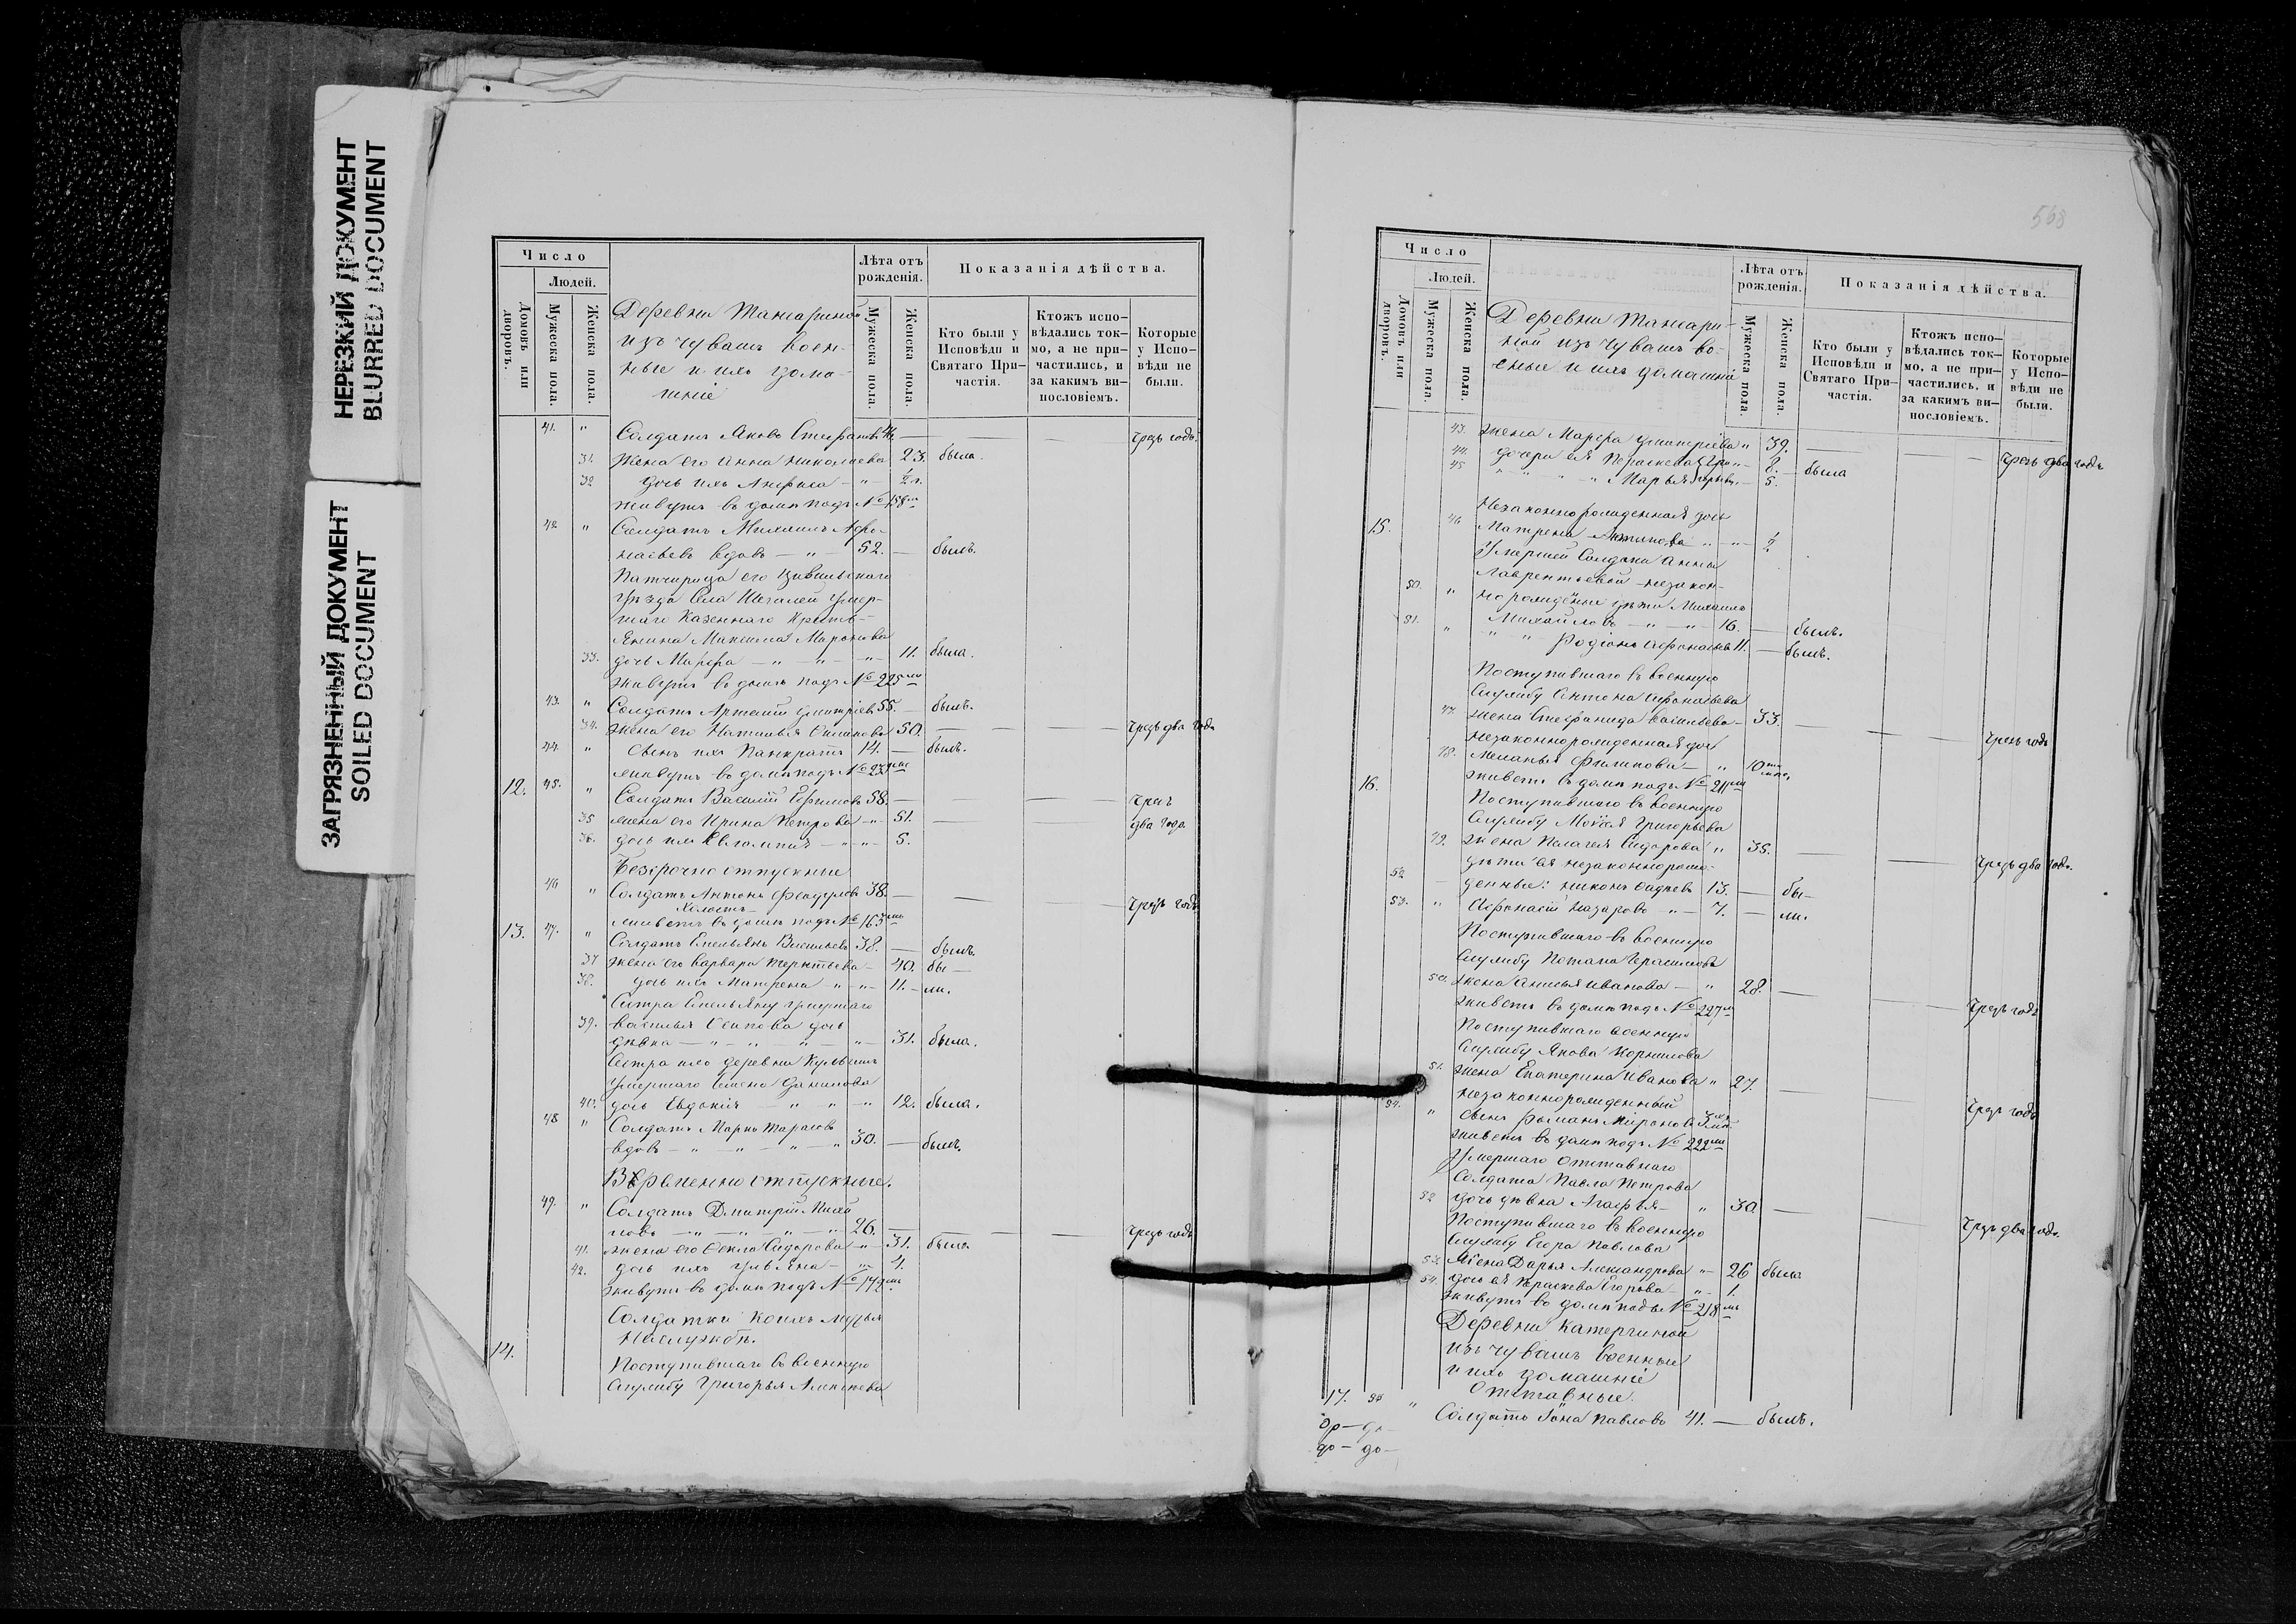 НЕРЕЗКИЙ ДОКУМЕНТ
BLURRED DOCUMENT
ЗАГРЯЗНЕННЫЙ ДОКУМЕНТ
SOILED DOCUMENT
Число
Людей.
Домовъ или дворовъ.
Мужеска пола.
Женска пола.
Деревни Тансариной
изъ чувашъ воен-
ные и ихъ дома-
шніе
Лѣта отъ рожденія.
Мужеска пола.
Женска пола.
Показанія дѣйства.
Кто были у Исповѣди и Святаго При-частія.
Ктожъ испо-вѣдались ток-мо, а не при-частились, и за какимъ ви-нословіемъ.
Которые у Испо-вѣди не были.
41. " Солдатъ Яковъ Стефановъ — чрезъ годъ.
31. Жена его Анна Николаева 23. была.
32 дочь ихъ Анфиса — " — ½ г.
живутъ въ домѣ подъ № 158мъ
42. " Солдатъ Михаилъ Афо-
насьевъ вдовъ — " — 52. — былъ.
Патчирица его Цивильскаго
уѣзда Села Шегалей умер-
шаго Казеннаго Кресть-
янина Максима Миронова
33. дочь Марфа — " — " — 11. была.
живутъ въ домѣ подъ № 225мъ
43. " Солдатъ Артемій Дмитріевъ 55. — былъ.
34. жена его Наталья 50. — чрезъ два года
44. " Сынъ ихъ Панкратъ 14. — былъ.
живутъ въ домѣ подъ № 233мъ
12. 45. " Солдатъ Василій Ефимовъ 58. — чрезъ
35 жена его Ирина Петрова — " 51. — два года.
36. дочь ихъ Евлампія — " — " — 5.
Безсрочно отпускные
46 " Солдатъ Антонъ Феодуловъ 38. — чрезъ годъ
Холостъ —
живетъ въ домѣ подъ № 163мъ
13. 47. " Солдатъ Емельянъ Васильевъ 38. — былъ.
37 жена его Варвара Терентьева — 40. бы —
38. дочь ихъ Матрена " — " — 11. — ли.
Сестра Емельяну умершаго
39. Василья Осипова дочь
дѣвка — " — " — " — " — 31. была.
Сестра изъ деревни
умершаго Семена Данилова
40. дочь Евдокія — " " — " — 12. была.
48 " Солдатъ Марко Тарасовъ
вдовъ — " — " — " — " 30. — былъ.
Временно отпускные.
49. " Солдатъ Дмитрій Михай
ловъ — " — " — " — " 26. — чрезъ годъ
41. жена его Ѳекла Сидорова — " — 31. была.
42. дочь ихъ Ульяна — " — 1.
живутъ въ домѣ подъ № 142мъ
Солдатки коихъ мужья
на службѣ.
14. Поступившаго въ военную
службу Григорья Алексѣева
568
Число
Людей.
Домовъ или дворовъ.
Мужеска пола.
Женска пола.
Деревни Тансари-
ной изъ чувашъ во-
енные и ихъ домашніе
Лѣта отъ рожденія.
Мужеска пола.
Женска пола.
Показанія дѣйства.
Кто были у Исповѣди и Святаго При-частія.
Ктожъ испо-вѣдались ток-мо, а не при-частились, и за какимъ ви-нословіемъ.
Которые у Испо-вѣди не были.
43. жена Марфа Дмитріева " 39. — чрезъ два года
44. дочери ея Пераскева — 8. — была
45 " " " " Марья — 5.
Незаконнорожденная дочь
15. 46 Матрена Антипова " — " — ½
Умершей Солдатки Анны
Лаврентьевой незакон-
50. " норожденные дѣти Михаилъ
Михайловъ — " — " — 16. — былъ.
51. " " " Родіонъ Афонасьевъ 11. — былъ.
Поступившаго въ военную
службу Антона Афонасьева
47. жена Стефанида Васильева — 33. — чрезъ годъ
Незаконнорожденная дочь
48. Меланья Филипова — " 10ти мѣс.
16. живетъ въ домѣ подъ № 211мъ
Поступившаго въ военную
службу Моѵсея Григорьева
49. жена Пелагея Сидорова " 35. — чрезъ два года.
дѣти ея незаконнорож-
52 — денные: Никонъ 13. — бы —
53. " Афонасій Назаровъ " — 7. — ли.
Поступившаго въ военную
службу Потапа Герасимова
50. жена Анисья Иванова — " 28. — чрезъ годъ
живетъ въ домѣ подъ № 227мъ
Поступившаго военную
службу Якова Корнилова
51. жена Екатерина Иванова " 27. — чрезъ годъ
Незаконнорожденный
54. " сынъ Романъ Мироновъ 3 мѣс.
живетъ въ домѣ подъ № 222мъ
Умершаго отставнаго
Солдата Павла Петрова
52 дочь дѣвка Агафья — " 30 — чрезъ два года.
Поступившаго въ военную
службу Егора Павлова
53. Жена Дарья Александрова " — 26 была
54. дочь ея Пераскева Егорова — " 1.
живутъ въ домѣ подъ № 218мъ
Деревни Катергиной
изъ чувашъ военные
и ихъ домашніе
Отставные.
17. 55 " Солдатъ Іона Павловъ 41. — былъ.